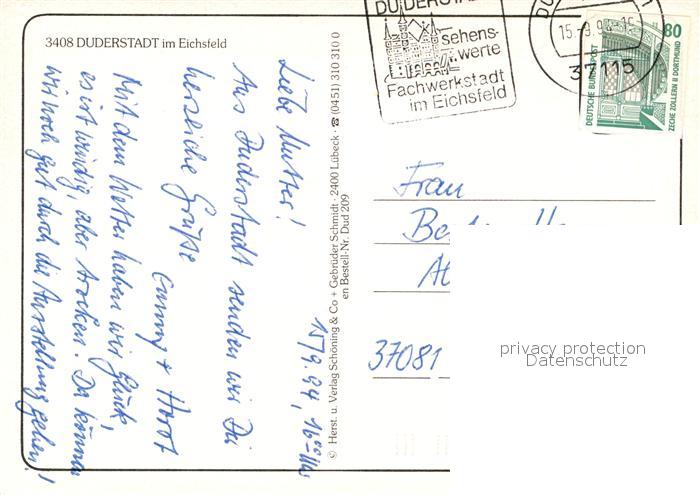 3408 DUDERSTADT im Eichsfeld
15/9.94, 16⁰⁰ Uhr
Liebe Mutter!
Aus Duderstadt senden wir Dir
herzliche Grüße
Conny + Horst
Mit dem Wetter haben wir Glück,
es ist windig, aber trocken. Da können
wir noch gut durch die Ausstellung gehen!
© Herst. u. Verlag Schöning & Co + Gebrüder Schmidt · 2400 Lübeck · ☎ (0451) 310 310 0
en Bestell-Nr. Dud 209
DUDERSTADT
sehens-
werte
Fachwerkstadt
im Eichsfeld
37115
80
DEUTSCHE BUNDESPOST
ZECHE ZOLLERN II DORTMUND
Frau
37081
privacy protection
Datenschutz